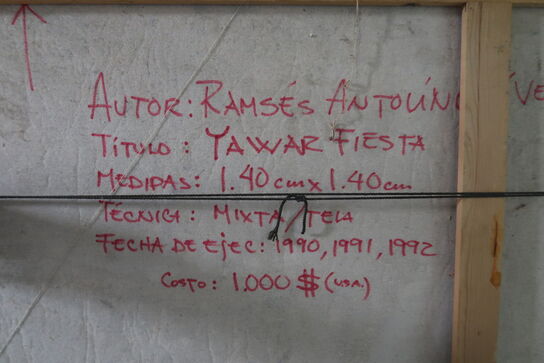 AUTOR: RAMSÉS ANTOLÍN
TÍTULO: YAWAR FIESTA
MEDIDAS: 1.40 cm x 1.40 cm
TÉCNICA: MIXTA/TELA
FECHA DE EJEC: 1990, 1991, 1992
COSTO: 1.000 $ (USA.)